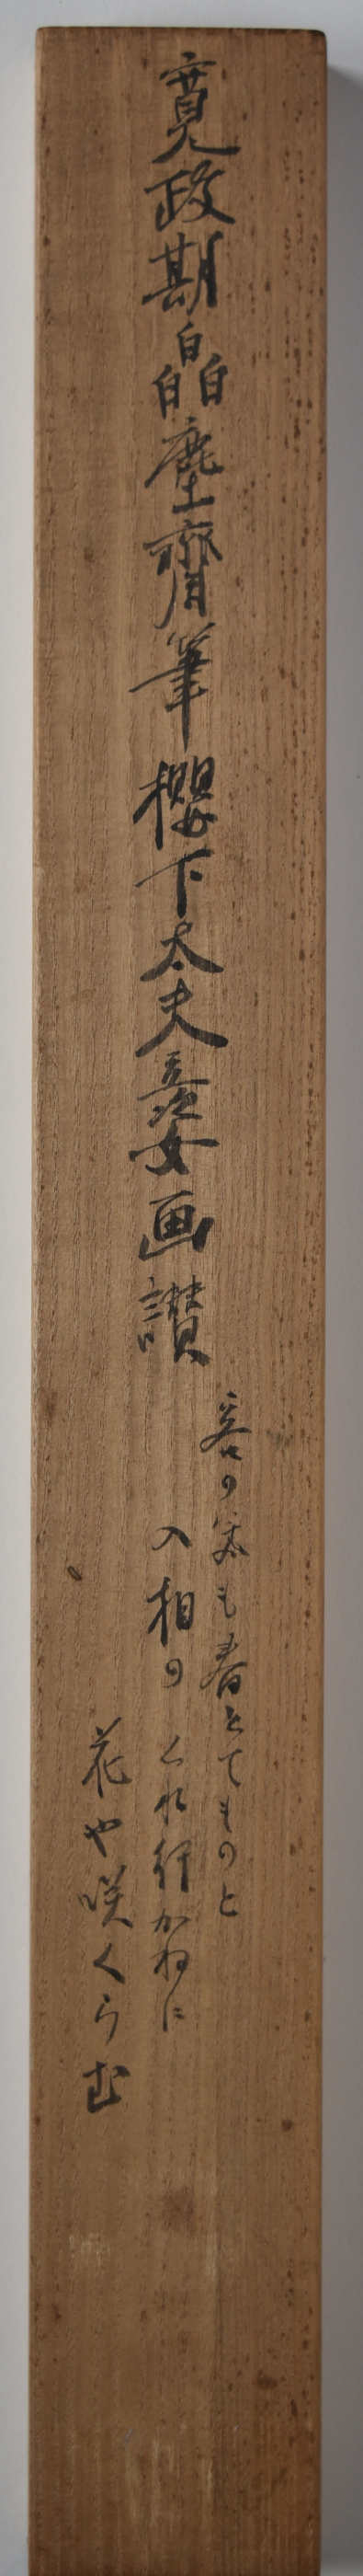 寛政期皛塵齋筆櫻下太夫姿画讃
客の實も春とてものと
入相のくれ行かねに
花や咲くらむ